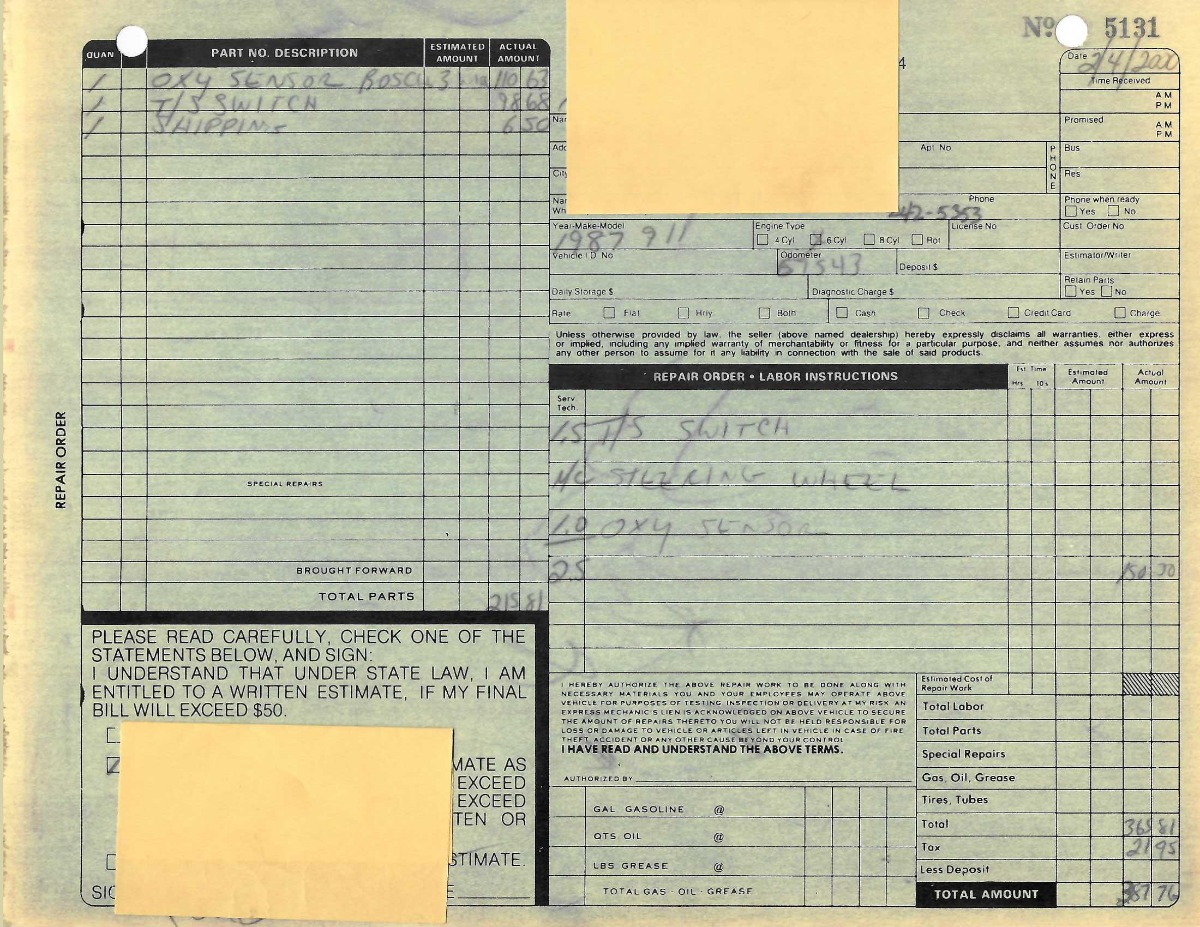 Nº 5131
QUAN PART NO. DESCRIPTION ESTIMATED AMOUNT ACTUAL AMOUNT
1 OXY SENSOR BOSCH 3 110 63
1 T/S SWITCH 98 68
1 SHIPPING 6 50
SPECIAL REPAIRS
BROUGHT FORWARD
TOTAL PARTS 215 81
REPAIR ORDER
PLEASE READ CAREFULLY, CHECK ONE OF THE
STATEMENTS BELOW, AND SIGN:
I UNDERSTAND THAT UNDER STATE LAW, I AM
ENTITLED TO A WRITTEN ESTIMATE, IF MY FINAL
BILL WILL EXCEED $50.
MATE AS
EXCEED
EXCEED
TEN OR
STIMATE.
SIG E
4
Date 2/4/200
Time Received
AM
PM
Promised
AM
PM
Nar
Add Apt. No. PHONE Bus
City Res
Nar
Wh
Phone
42-5353
Phone when ready
Yes No
Year-Make-Model Engine Type License No Cust Order No
1987 911 4 Cyl 6 Cyl 8 Cyl Rot
Vehicle I.D. No. Odometer Deposit $ Estimator/Writer
57543
Daily Storage $ Diagnostic Charge $ Retain Parts
Yes No
Rate Flat Hrly Both Cash Check Credit Card Charge
Unless otherwise provided by law, the seller (above named dealership) hereby expressly disclaims all warranties, either express
or implied, including any implied warranty of merchantability or fitness for a particular purpose, and neither assumes nor authorizes
any other person to assume for it any liability in connection with the sale of said products.
REPAIR ORDER • LABOR INSTRUCTIONS Est Time Hrs 10's Estimated Amount Actual Amount
Serv Tech.
1.5 T/S SWITCH
N/C STEERING WHEEL
1.0 OXY SENSOR
2.5 150 00
I HEREBY AUTHORIZE THE ABOVE REPAIR WORK TO BE DONE ALONG WITH
NECESSARY MATERIALS YOU AND YOUR EMPLOYEES MAY OPERATE ABOVE
VEHICLE FOR PURPOSES OF TESTING INSPECTION OR DELIVERY AT MY RISK AN
EXPRESS MECHANIC'S LIEN IS ACKNOWLEDGED ON ABOVE VEHICLE TO SECURE
THE AMOUNT OF REPAIRS THERETO YOU WILL NOT BE HELD RESPONSIBLE FOR
LOSS OR DAMAGE TO VEHICLE OR ARTICLES LEFT IN VEHICLE IN CASE OF FIRE
THEFT ACCIDENT OR ANY OTHER CAUSE BEYOND YOUR CONTROL
I HAVE READ AND UNDERSTAND THE ABOVE TERMS.
AUTHORIZED BY
GAL. GASOLINE @
QTS. OIL @
LBS GREASE @
TOTAL GAS - OIL - GREASE
Estimated Cost of Repair Work
Total Labor
Total Parts
Special Repairs
Gas, Oil, Grease
Tires, Tubes
Total 365 81
Tax 21 95
Less Deposit
TOTAL AMOUNT 387 76